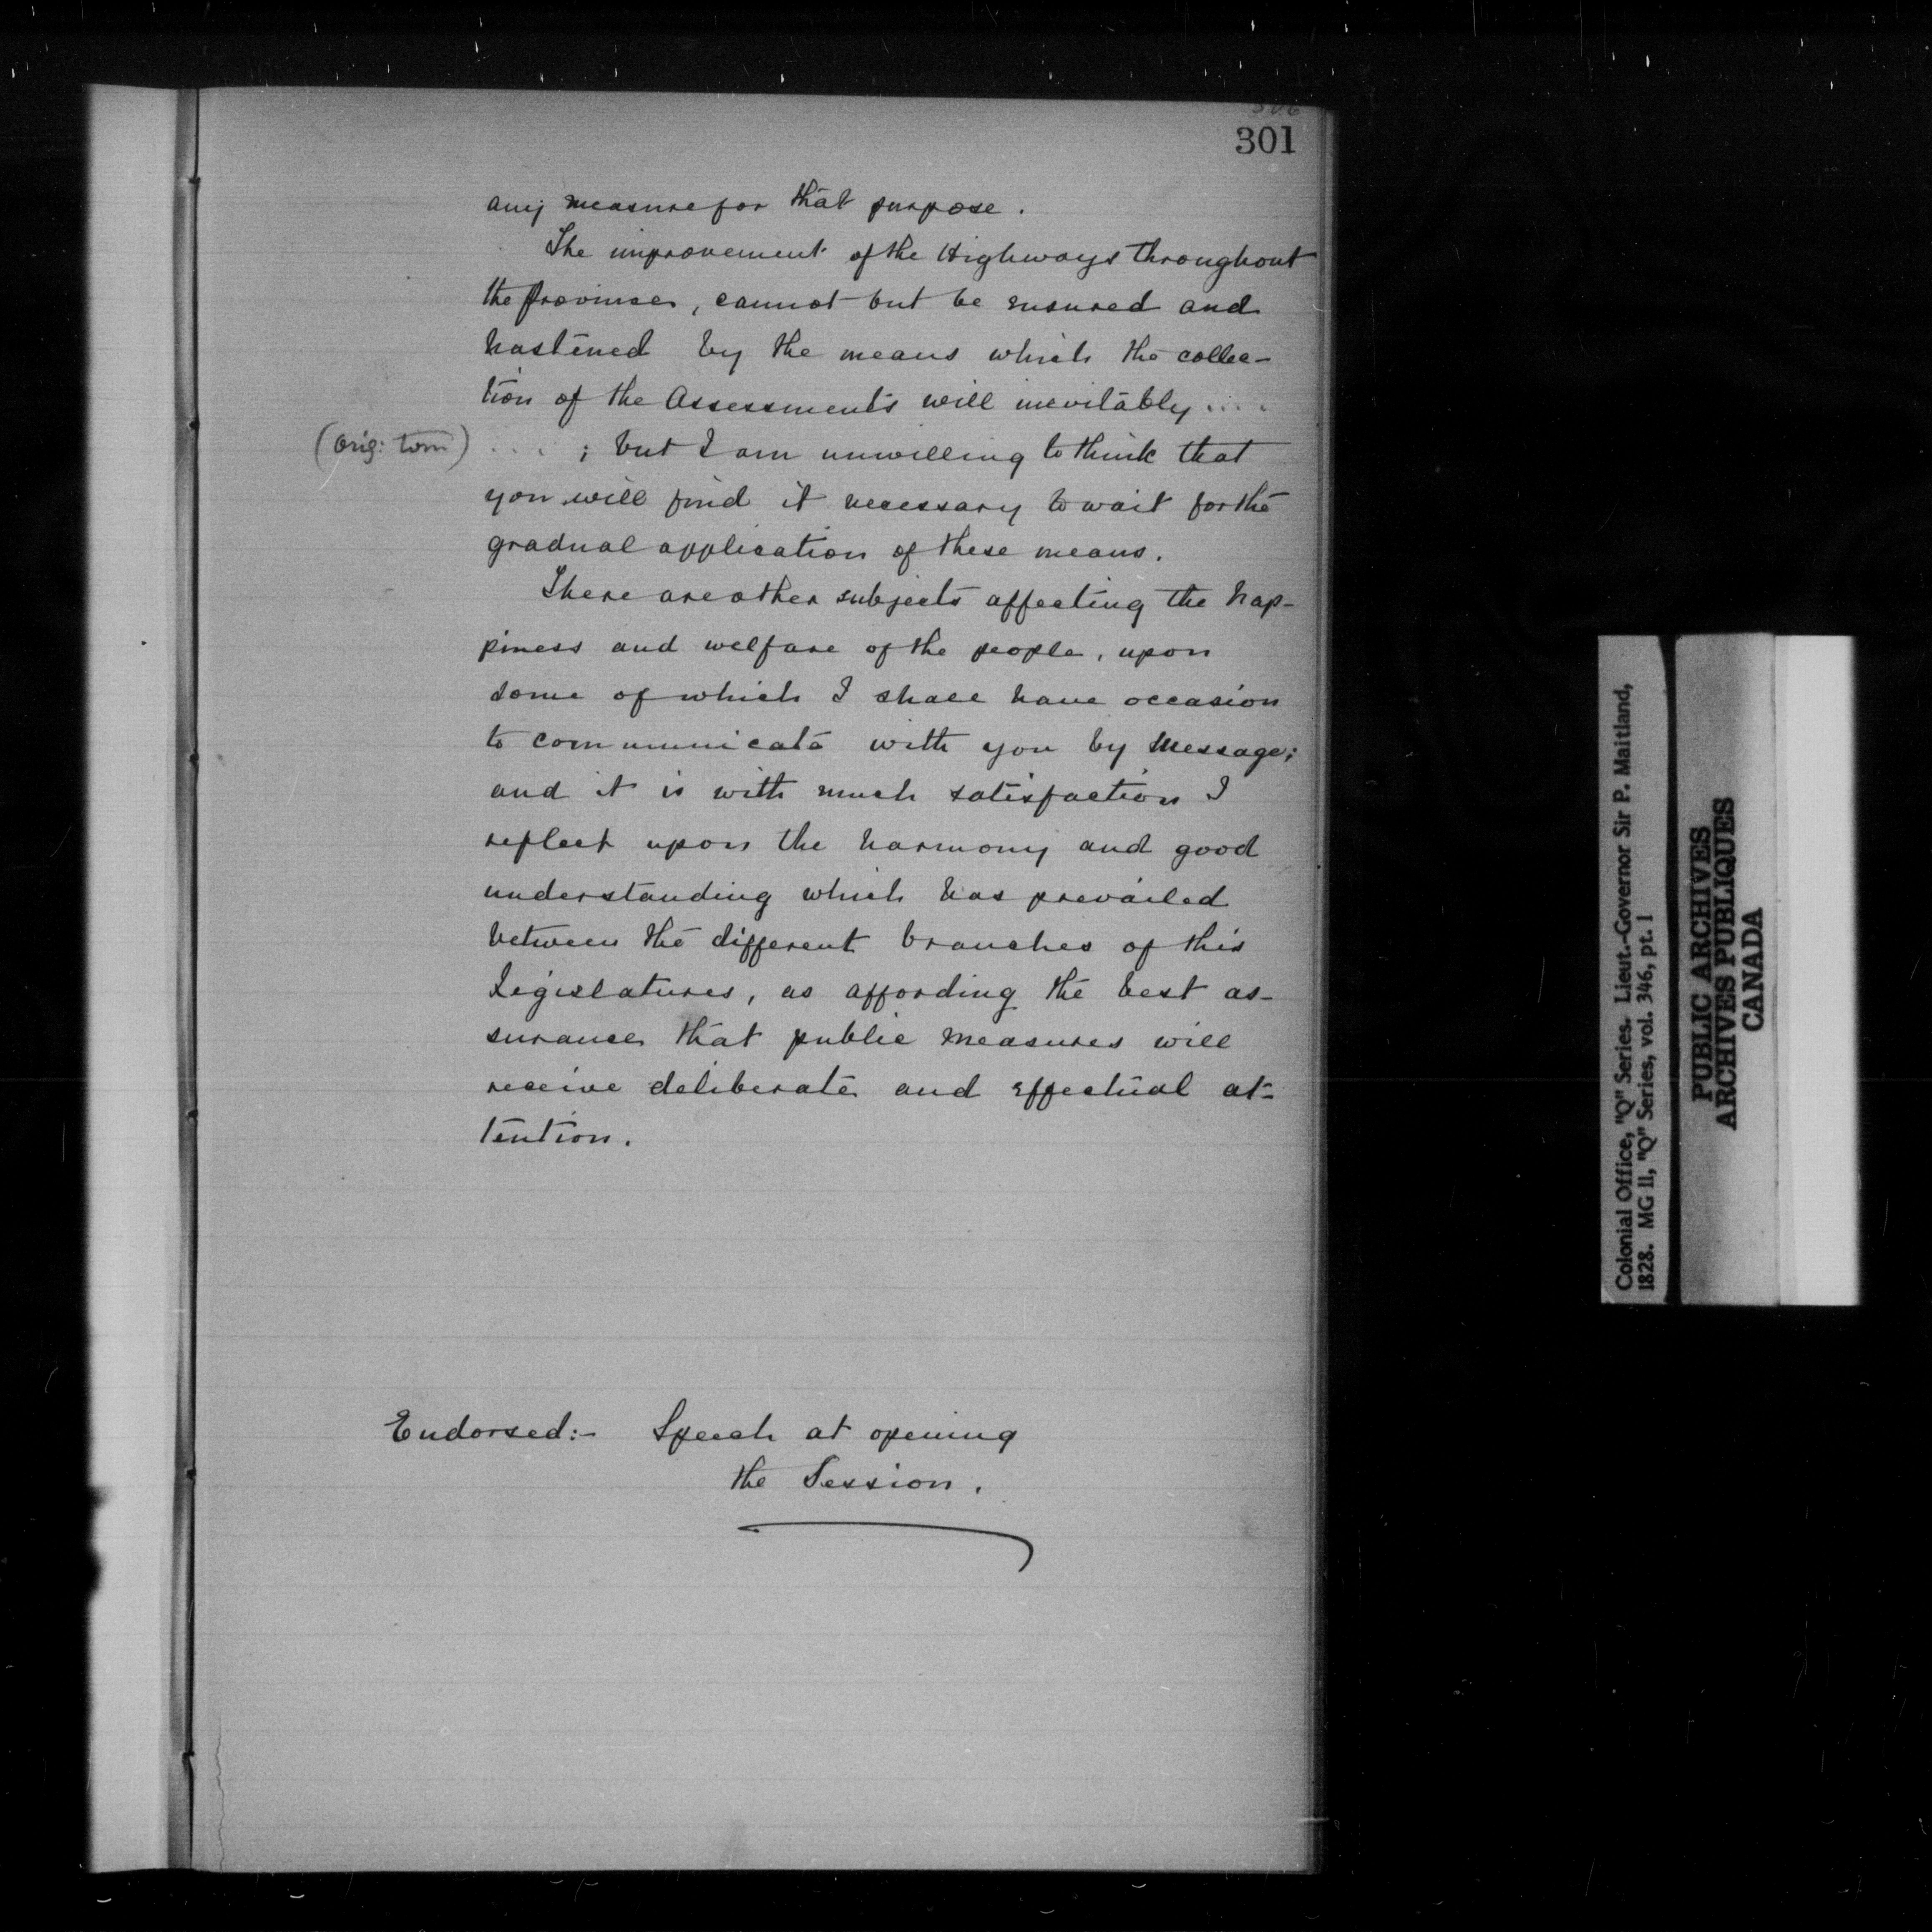 301
any measure for that purpose.
The improvement of the Highways throughout
the Province, cannot but be ensured and
hastened by the means which the collec-
tion of the Assessments will inevitably ....
(orig: torn) .... ; but I am unwilling to think that
you will find it necessary to wait for the
gradual application of these means.
There are other subjects affecting the hap-
piness and welfare of the people, upon
some of which I shall have occasion
to communicate with you by Message;
and it is with much satisfaction I
reflect upon the harmony and good
understanding which has prevailed
between the different branches of this
Legislature, as affording the best as-
surance that public measures will
receive deliberate and effectual at-
tention.
Endorsed:- Speech at opening
the Session.
Colonial Office, "Q" Series. Lieut.-Governor Sir P. Maitland,
1828. MG 11, "Q" Series, vol. 346, pt. 1
PUBLIC ARCHIVES
ARCHIVES PUBLIQUES
CANADA